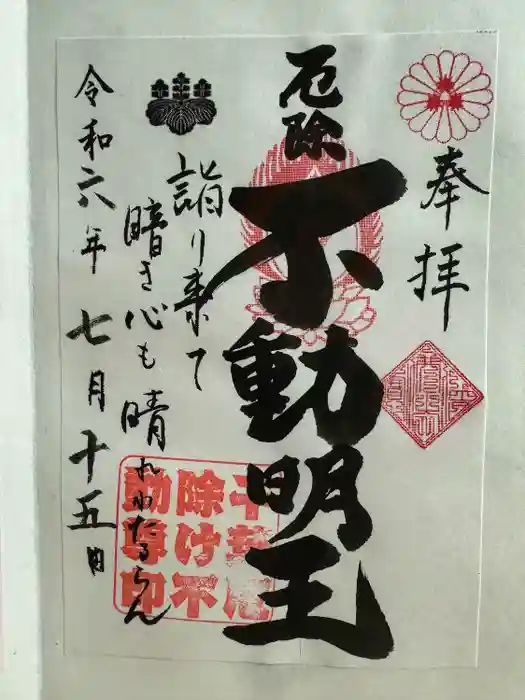 奉拝
厄除
不動明王
詣り来て
暗き心も晴れわたるらん
令和六年七月十五日
除け不
動尊印